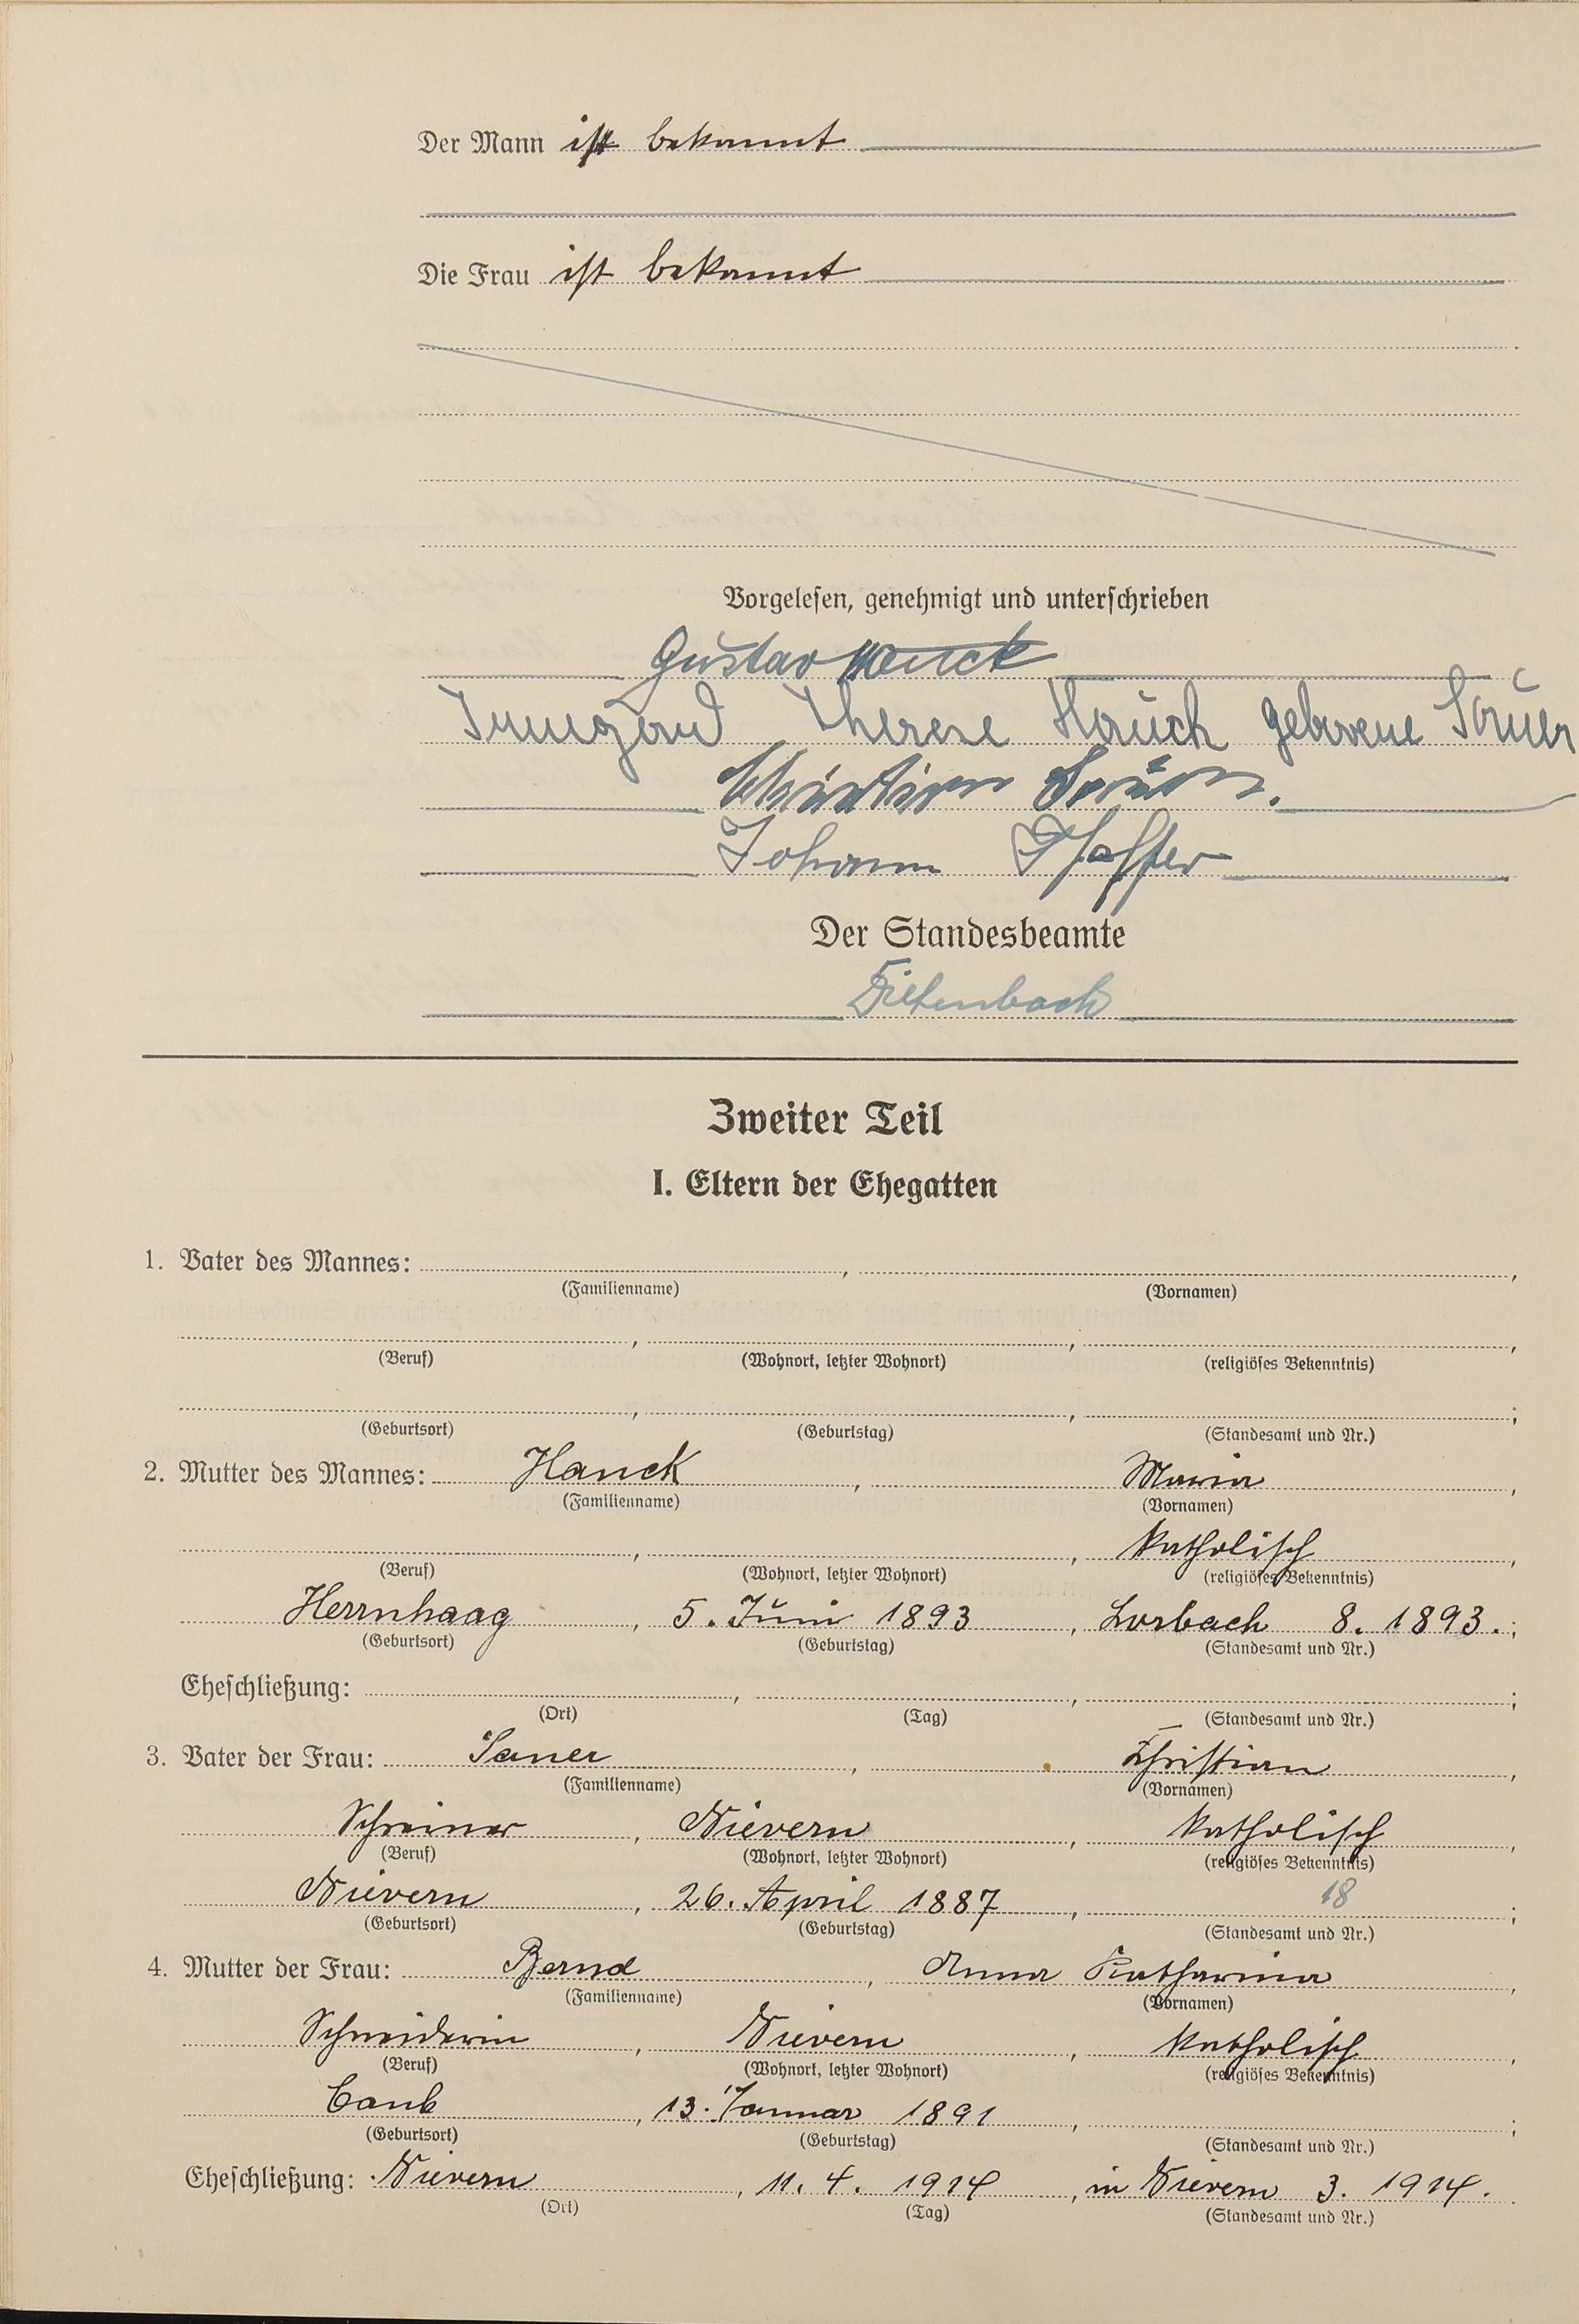 Der Mann ist bekannt
Die Frau ist bekannt
Vorgelesen, genehmigt und unterschrieben
Gustav Hauck
Irmgard Therese Hauck geborene Sauer
Christian Sauer.
Johann Pfaffer
Der Standesbeamte
Diefenbach
Zweiter Teil
I. Eltern der Ehegatten
1. Vater des Mannes: , ,
(Familienname) (Vornamen)
, , ,
(Beruf) (Wohnort, letzter Wohnort) (religiöses Bekenntnis)
, , ;
(Geburtsort) (Geburtstag) (Standesamt und Nr.)
2. Mutter des Mannes: Hauck , Maria ,
(Familienname) (Vornamen)
, , katholisch ,
(Beruf) (Wohnort, letzter Wohnort) (religiöses Bekenntnis)
Herrnhaag , 5. Juni 1893 , Lorbach 8. 1893. ;
(Geburtsort) (Geburtstag) (Standesamt und Nr.)
Eheschließung: , , ;
(Ort) (Tag) (Standesamt und Nr.)
3. Vater der Frau: Sauer , Christian ,
(Familienname) (Vornamen)
Schreiner , Nievern , katholisch ,
(Beruf) (Wohnort, letzter Wohnort) (religiöses Bekenntnis)
Nievern , 26. April 1887 , 18 ;
(Geburtsort) (Geburtstag) (Standesamt und Nr.)
4. Mutter der Frau: Bernd , Anna Katharina ,
(Familienname) (Vornamen)
Schneiderin , Nievern , katholisch ,
(Beruf) (Wohnort, letzter Wohnort) (religiöses Bekenntnis)
Caub , 13. Januar 1891 , ;
(Geburtsort) (Geburtstag) (Standesamt und Nr.)
Eheschließung: Nievern , 11. 4. 1914 , in Nievern 3. 1914.
(Ort) (Tag) (Standesamt und Nr.)